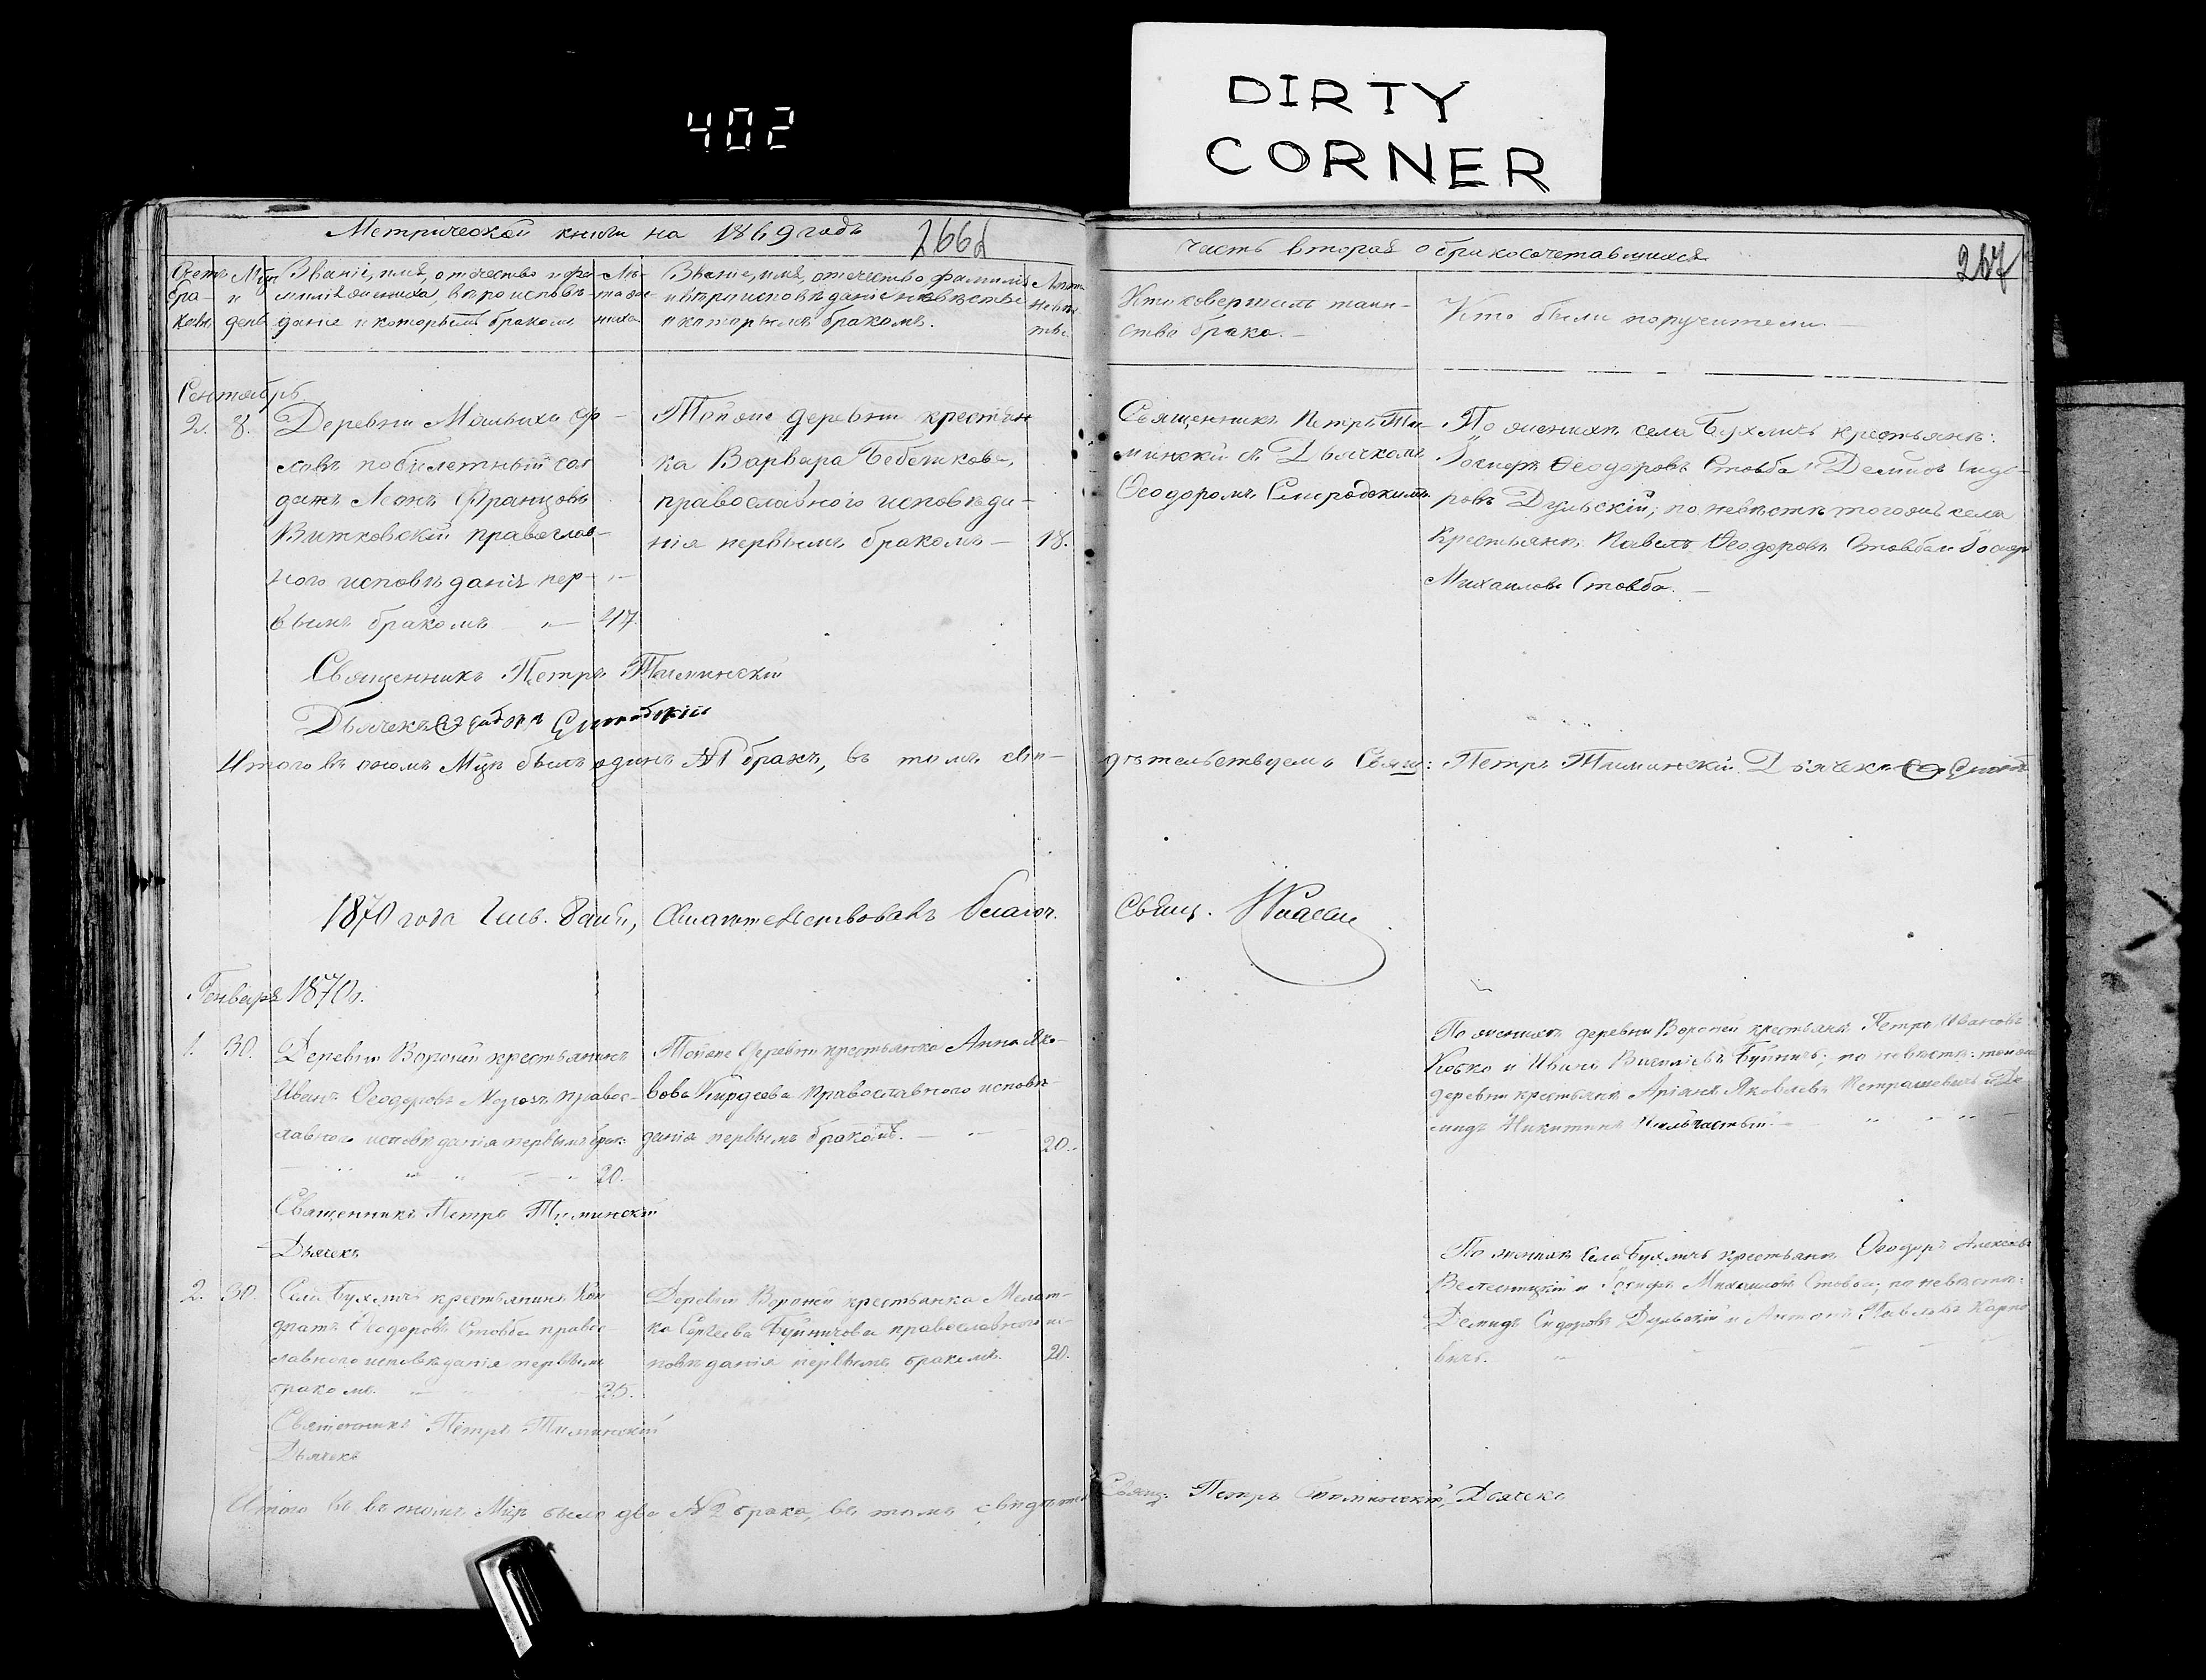 402
DIRTY
CORNER
Метрической книги на 1869 годъ
266
часть вторая о бракосочетавшихся
267
Счетъ бра-
ковъ
Мцъ и день
Званіе, имя, отчество и фа-
милія жениха, вѣроисповѣ-
даніе и которымъ бракомъ
Лѣ-
та же-
ниха
Званіе, имя, отечество фамилія
и вѣроисповѣданіе невѣсты
и которымъ бракомъ.
Лѣта
невѣс-
ты.
Кто совершалъ таин-
ство брака.
Кто были поручители.
Сентябрь
2. 8. Деревни
ловъ побилетный сол
датъ Леонъ Францовъ
Витковскій правослов-
ного исповѣданія пер-
вымъ бракомъ 47.
Той же деревни крестьян
ка Варвара
православного исповѣда-
нія первымъ бракомъ 18.
Священникъ Петръ Ти-
минскій съ Дьячкомъ
Ѳеодоромъ
По женихѣ села Бухличъ крестьяне:
Іосифъ Ѳеодоровъ Стовба и Демидъ Сидо-
ровъ Дульскій; по невѣстѣ тогожъ села
Крестьяне: Павелъ Ѳеодоровъ Стовба и Іосифъ
Михаиловъ Стовба.
Священникъ Петръ Тиминскій
Дьячекъ
Итого въ ономъ Мцѣ былъ одинъ №1 бракъ, въ томъ сви-
дѣтельствуемъ Свящ: Петръ Тиминскій Дьячекъ
1870 года Свидѣтельствовалъ Благоч. Свящ.
Генварь 1870 г.
1. 30. Деревни Вороней крестьянинъ
Иванъ Ѳеодоровъ Морозъ правос-
лавного исповѣданія первымъ брак:
20.
Той же деревни крестьянка Анна Яко-
вова Кирдеева Православного исповѣ-
данія первымъ бракомъ.
20.
По женихѣ деревни Вороней крестьяне Петръ Ивановъ
Ковко и Иванъ Василіевъ Буйничъ; по невѣстѣ: той же
деревни крестьяне Аріанъ Яковлевъ Петрашевичъ и Де
мидъ Никитинъ
Священникъ Петръ Тиминскій
Дьячекъ
2. 30. Села Бухличъ крестьянинъ Кон
дратъ Ѳеодоровъ Стовба правос
лавного исповѣданія первымъ
бракомъ. 25.
Деревни Вороней крестьянка Мелан-
ка Сергеева Буйничова православного ис-
повѣданія первымъ бракомъ. 20.
По женихѣ Села Бухличъ крестьяне Ѳеодоръ Алексѣевъ
и Іосифъ Михаиловъ Стовба; по невѣстѣ:
Демидъ Сидоровъ Дульскій и Антоній Павловъ Карпо
вичъ.
Священникъ Петръ Тиминскій
Дьячекъ
Итого въ въ ономъ Мцѣ было два №2 брака, въ томъ свидѣтел
Свящ: Петръ Тиминскій, Дьячекъ